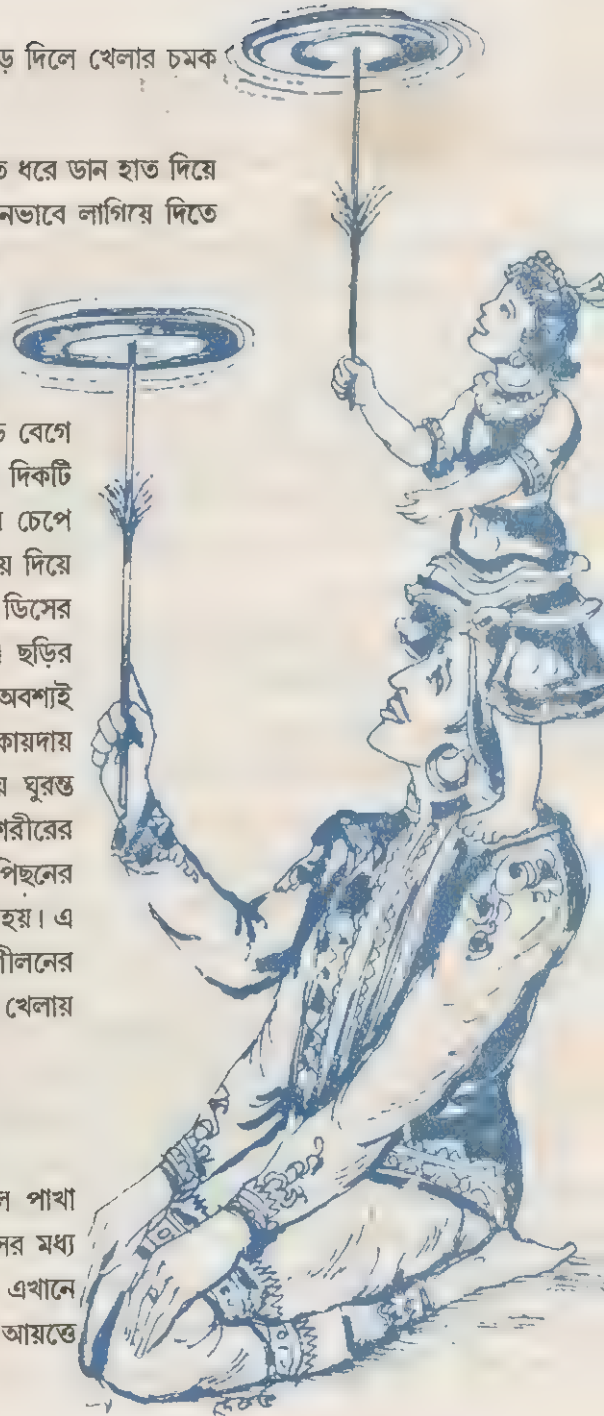 দিলে খেলার চমক
ধরে ডান হাত দিয়ে
লাগিয়ে দিতে
বেগে
দিকটি
চেপে
দিয়ে
ডিসের
ছড়ির
অবশ্যই
কায়দায়
ঘুরন্ত
শরীরের
পিছনের
হয়। এ
খেলায়
পাখা
মধ্য
এখানে
আয়ত্তে